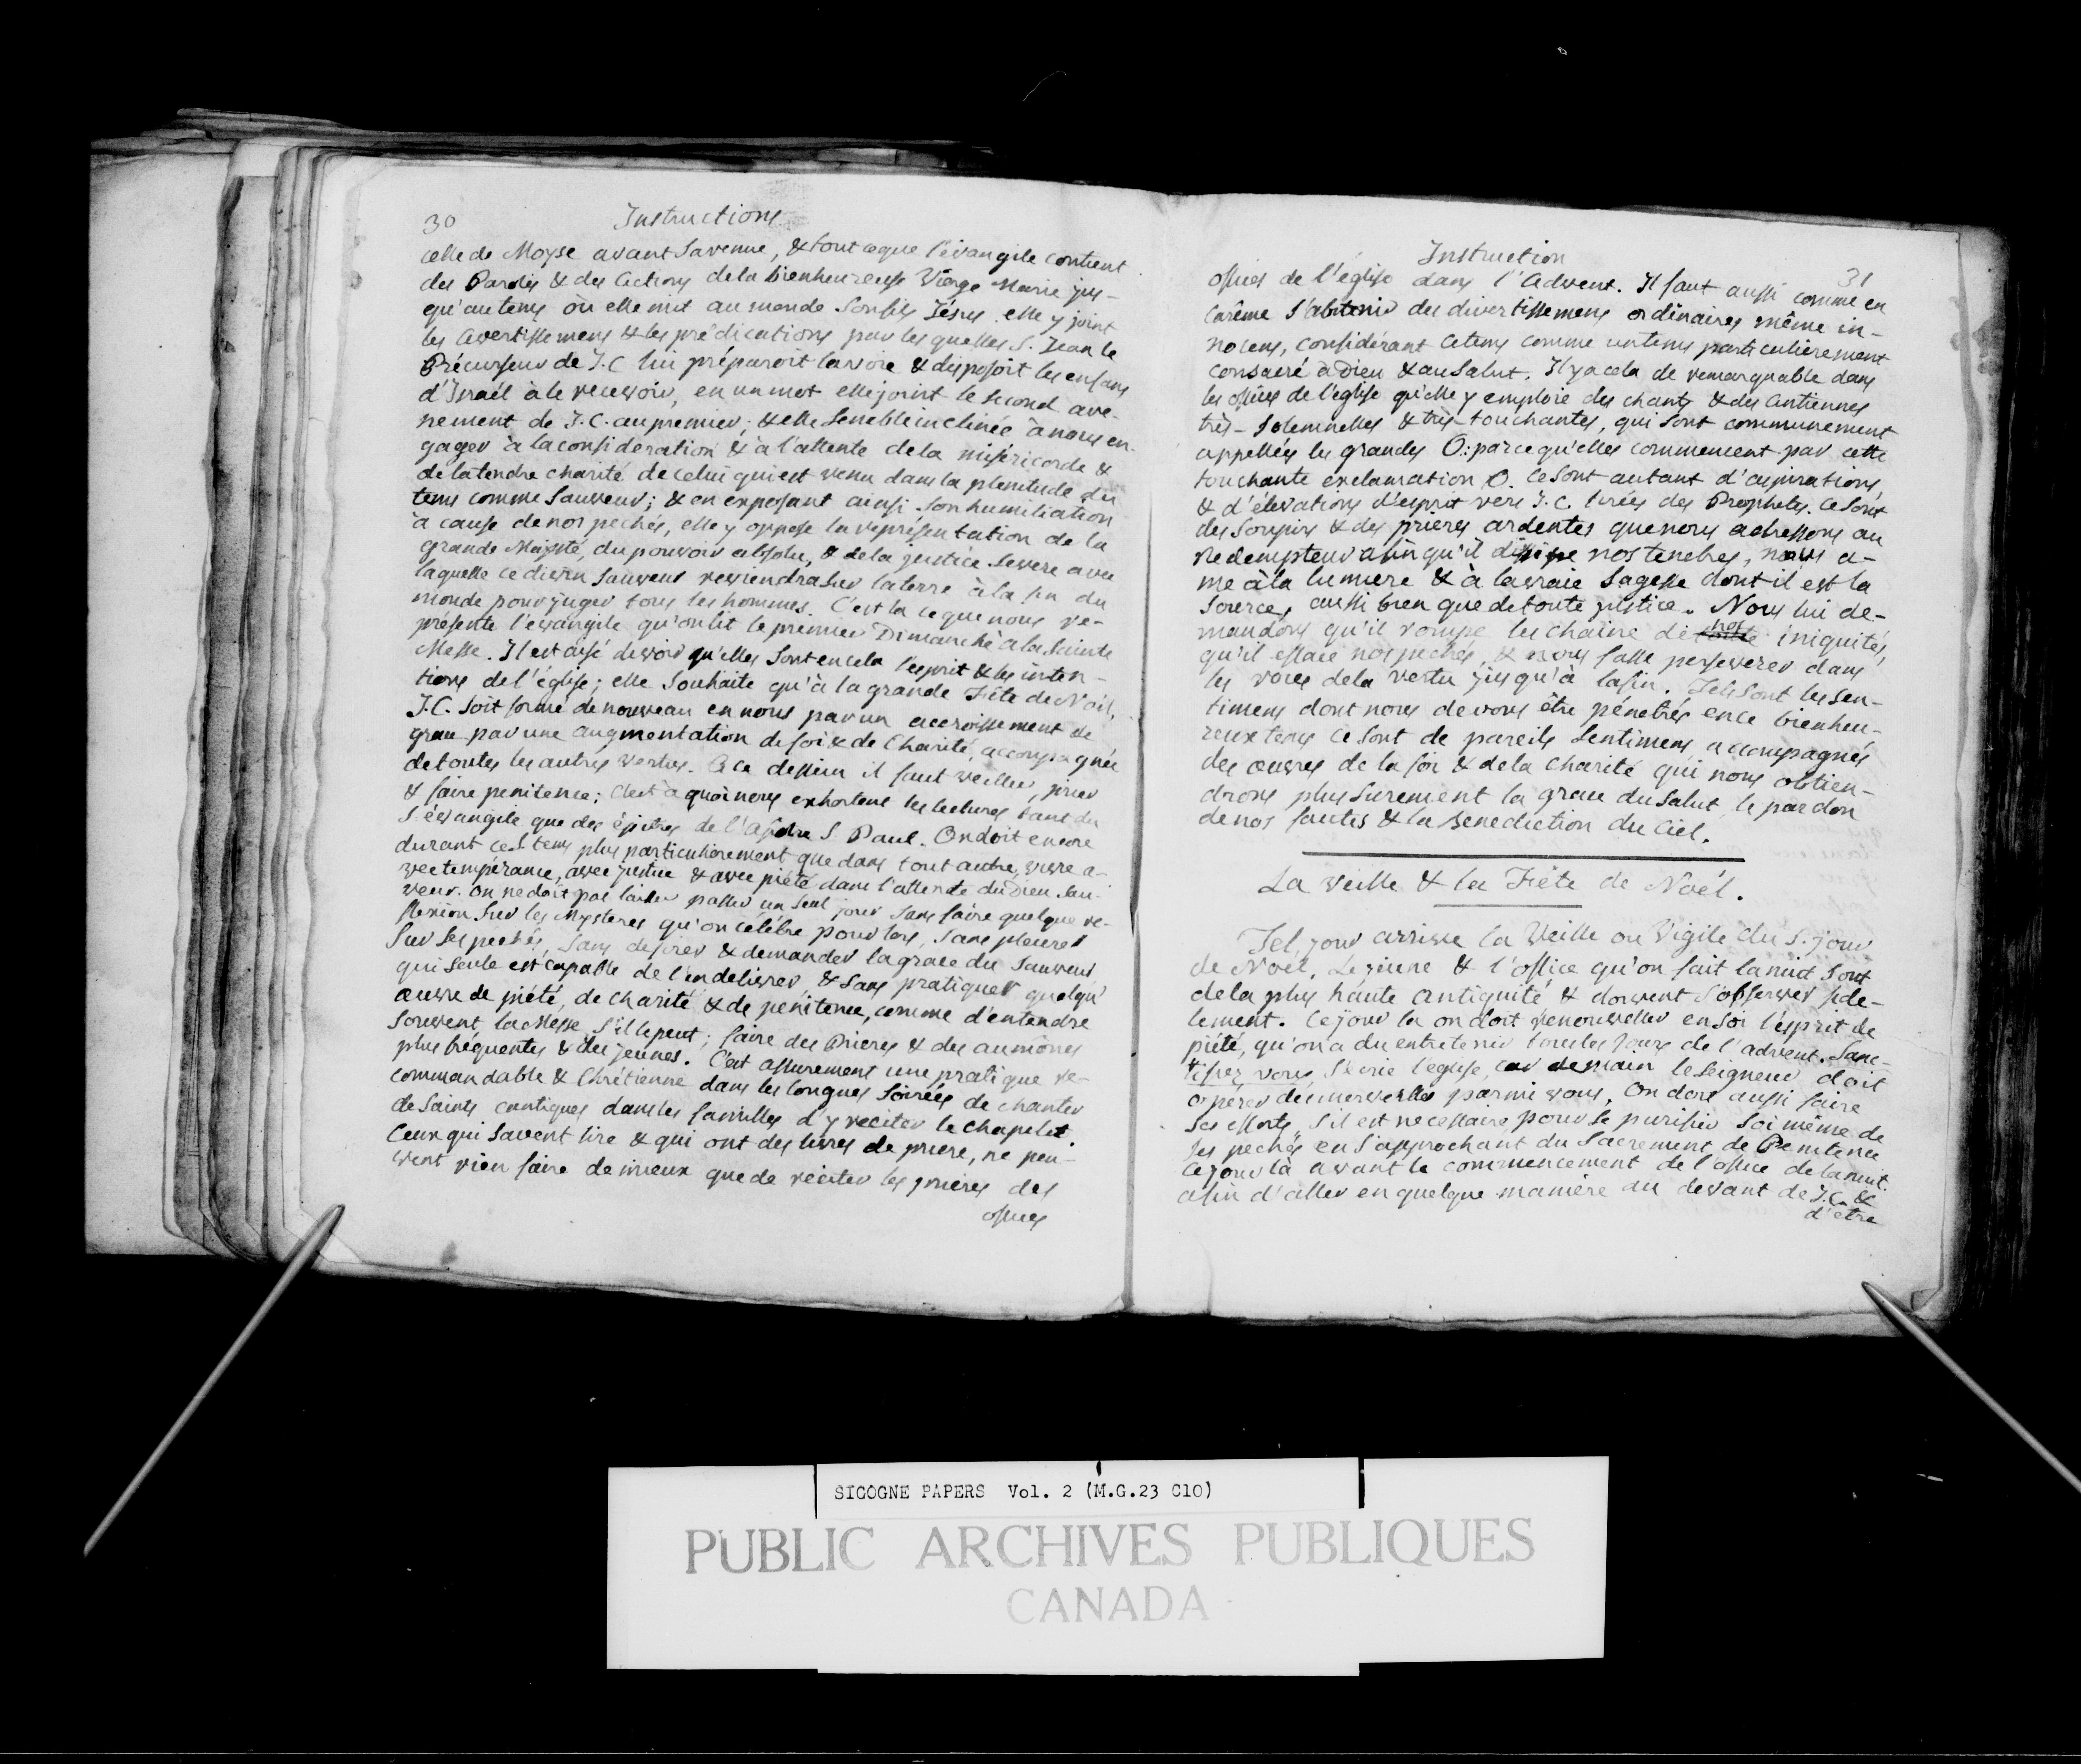 30
Instructions
celle de Moyse avant Savenue, & tout ceque l'évangile contient
des Paroles & des Actions dela bienheureuse Vierge Marie jus-
qu'au tems où elle mit au monde Sonfils Jésus. elle y joint
les Avertissemens & les prédications par les quelles S. Jean le
Précurseur de J.C lui préparoit lavoie & disposoit les enfans
d'Israél à le recevoir, en un mot elle joint le second ave-
nement de J.C. au premier; & elle Semble inclinée à nous en-
gager à laconsideration & à l'attente dela miséricorde &
de latendre charité de celui qui est venu dans la plenitude du
tems comme Sauveur; & en exposant ainsi Son humiliation
à cause denos pechés, elle y oppose la représentation de la
grande Majesté, du pouvoir absolu, & dela justice Severe avec
laquelle ce divin Sauveur reviendrasur laterre à la fin du
monde pour juger tous les hommes. C'est la ceque nous re-
présente l'evangile qu'on lit le premier Dimanche à la Sainte
Messe. Il est aisé devoir qu'elles Sont en cela l'esprit & les inten-
tions de l'église; elle Souhaite qu'à la grande Fête de Noël,
J.C. Soit formé de nouveau en nous par un accroissement de
grace par une augmentation de foi & de Charité, accompagnée
detoutes les autres vertus. A ce dessein il faut veiller, prier
& faire penitence; C'est à quoi nous exhortent les lectures tant du
S. évangile que des épitres de l'Apôtre S. Paul. On doit encore
durant ces tems plus particulierement que dans tout autre, vivre a-
vec tempérance, avec justice & avec piété dans l'attente du Dieu Sau-
veur. On ne doit pas laisser passer un Seul jour Sans faire quelque re-
flexion Sur les Mysteres qu'on célébre pour lors, Sans pleurer
Sur Ses pechés, Sans desirer & demander la grace du Sauveur
qui Seule est capable de l'en delivrer, & Sans pratiquer quelqu'
œuvre de piété, de charité & de penitence, comme d'entendre
Souvent la Messe, S'il le peut; faire des Prieres & des aumônes
plus frequentes & des jeunes. C'est assurement une pratique re-
commandable & Chrétienne dans les longues Soirées de chanter
de Saints cantiques dans les familles d'y reciter le Chapelet.
Ceux qui Savent lire & qui ont des livres de priere, ne peu-
vent rien faire de mieux que de réciter les prieres des
offices
Instruction
31
offices de l'église dans l'Advent. Il faut aussi comme en
Carême S'abstenir des divertissemens ordinaires même in-
nocens, considérant cetems comme untems particulierement
consacré à Dieu & au Salut. Il y a cela de remarquable dans
les offices de l'église qu'elle y emploie des chants & des Antiennes
très-Solemnelles & très-touchantes, qui Sont communement
appellées les grandes O: parce qu'elles commencent par cette
touchante exclamation O. Ce Sont autant d'aspirations,
& d'élevations d'esprit vers J.C. tirées des Prophetes. Ce Sont
des Soupirs & des prieres ardentes que nous adressons au
Redempteur afin qu'il dissipe nos tenebres, nous a-
me à la lumiere & à la vraie Sagesse dont il est la
Source, aussi bien que de toute justice. Nous lui de-
mandons qu'il rompe les chaine de nos iniquités,
qu'il efface nos pechés, & nous fasse perseverer dans
les voies dela vertu jusqu'à lafin. Tels Sont les Sen-
timens dont nous devons être pénetrés en ce bienheu-
reux tems Ce Sont de pareils Sentimens accompagnés
des œuvres de la foi & dela charité qui nous obtien-
drons plus Surement la grace du Salut, le pardon
de nos fautes & la Benediction du Ciel.
La Veille & la Fête de Noël.
Tel jour arrive la Veille ou Vigile du S. jour
de Noël. Le jeune & l'office qu'on fait la nuit Sont
de la plus haute antiquité & doivent S'observer fide-
lement. Ce jour la on doit renouveller en Soi l'esprit de
piété, qu'on a du entretenir tous les jours de l'advent. Sanc-
tifiez vous, S'écrie l'eglise, car demain le Seigneur doit
opérer des merveilles parmi vous. On doit aussi faire
Ses efforts, S'il est necessaire pour Se purifier Soi même de
Ses pechés en S'approchant du Sacrement de Penitence
Ce jour là avant le commencement de l'office de la nuit.
afin d'aller en quelque maniere au devant de J.C. &
d'être
SICOGNE PAPERS Vol. 2 (M.G.23 C10)
PUBLIC ARCHIVES PUBLIQUES
CANADA